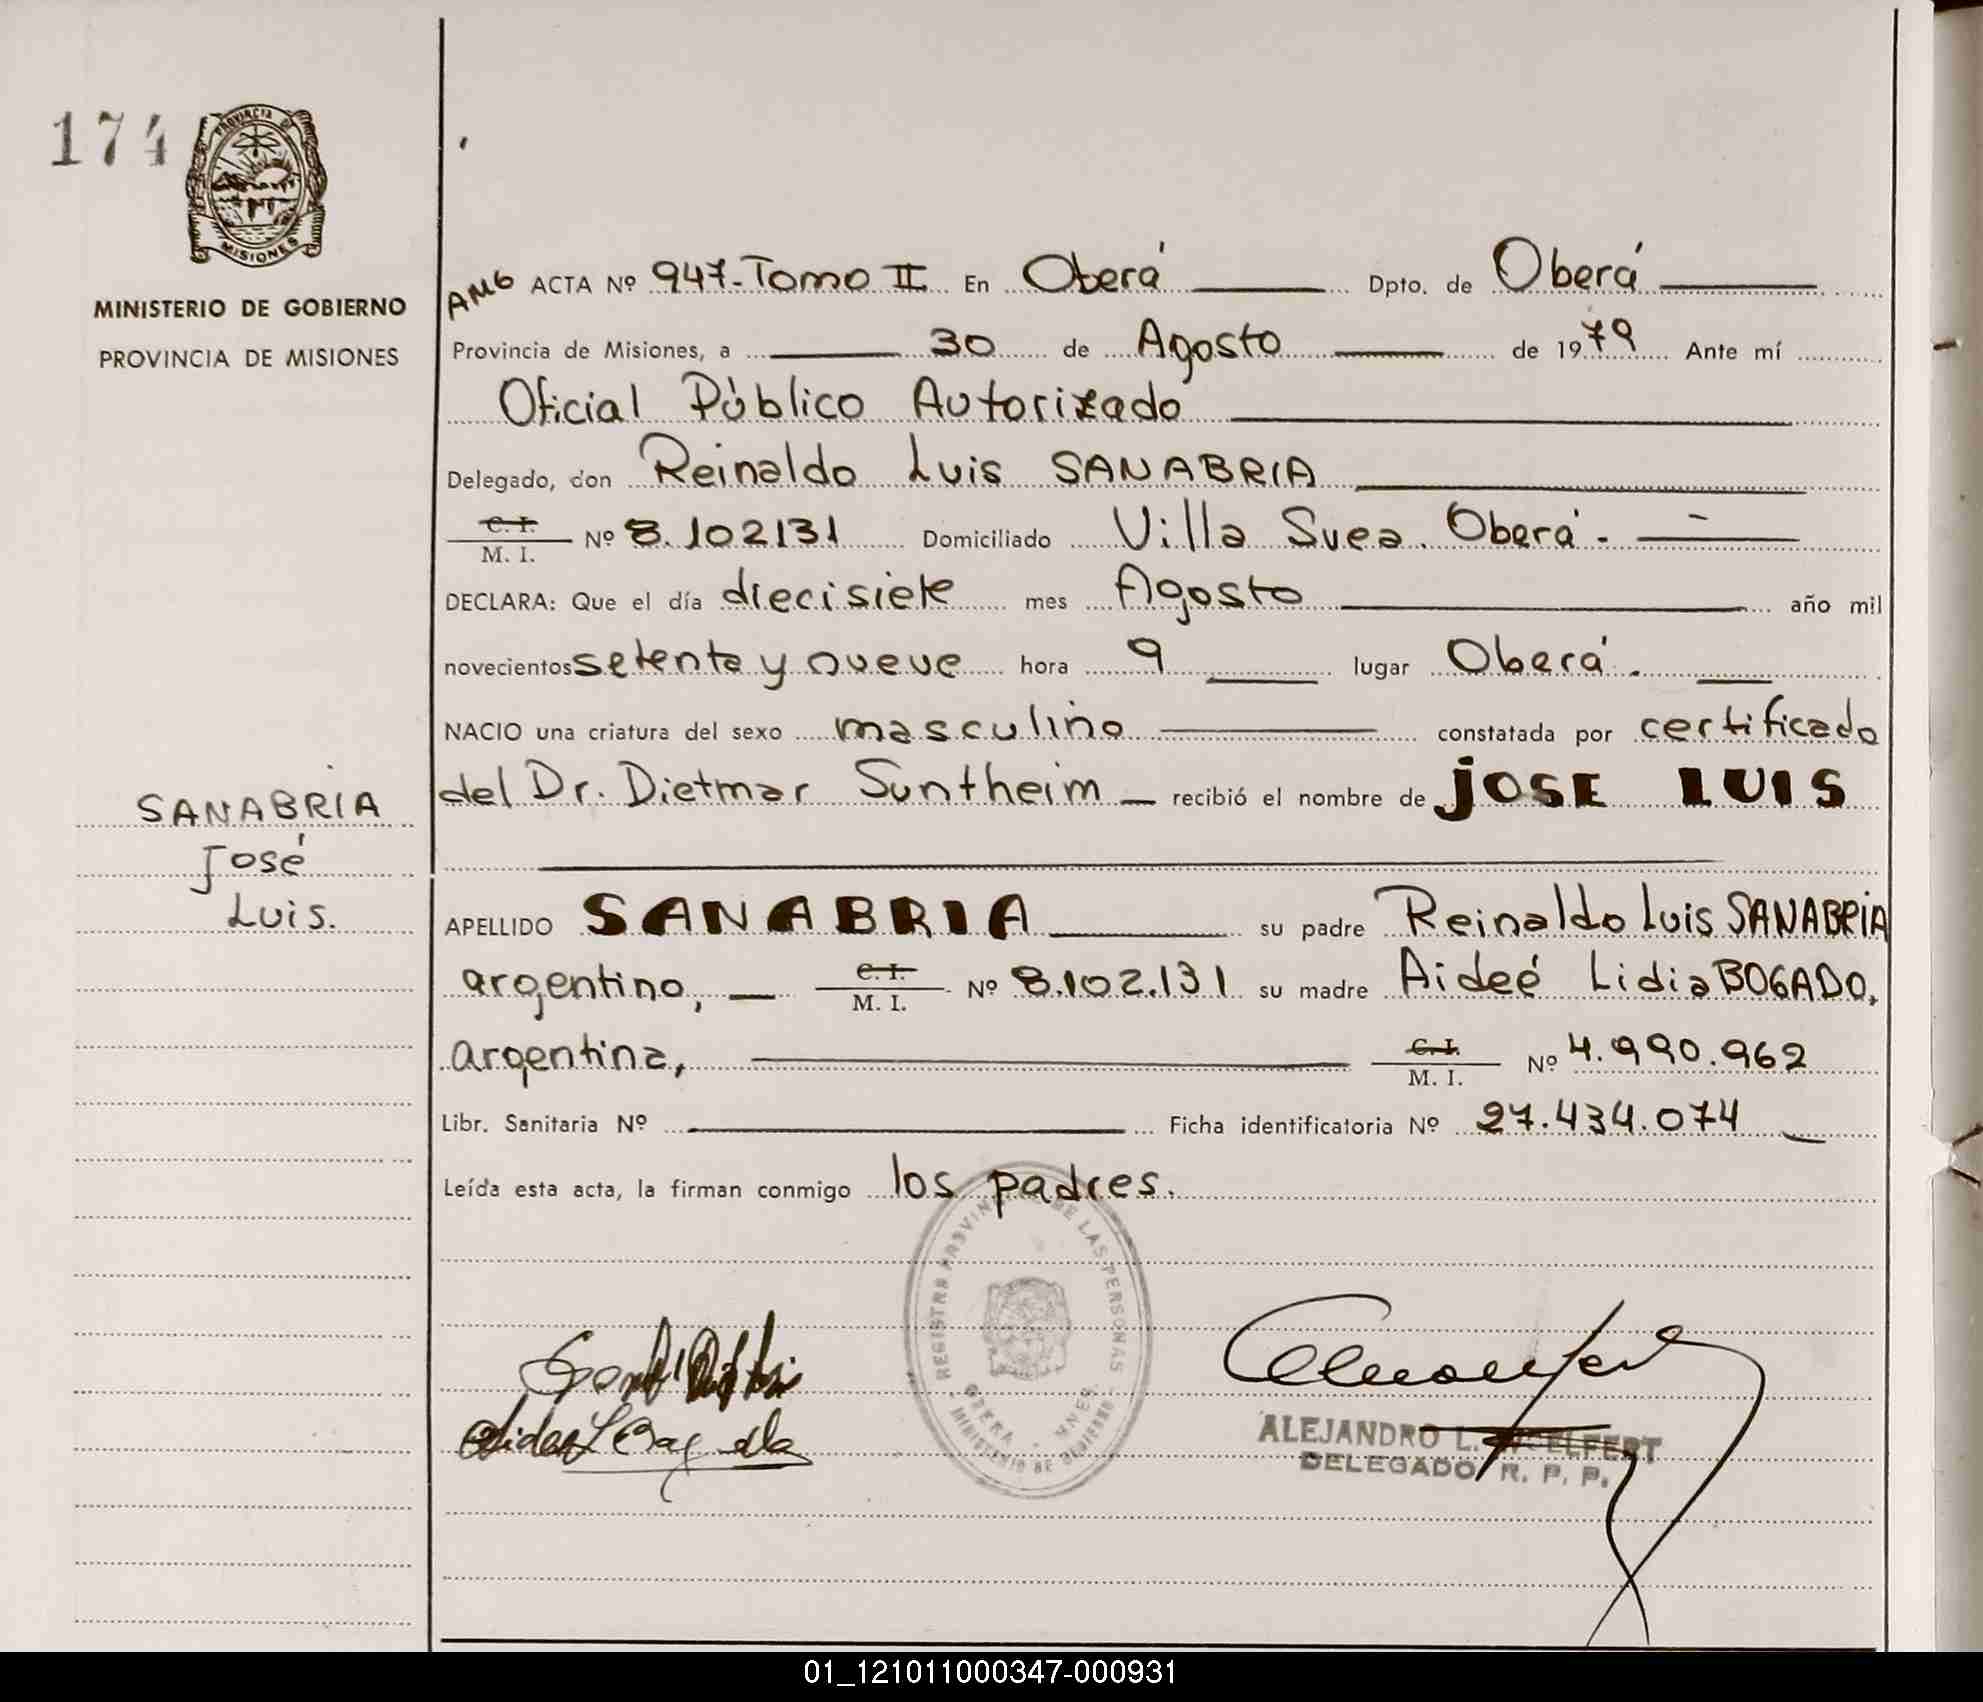 174
PROVINCIA DE
MISIONES
MINISTERIO DE GOBIERNO
PROVINCIA DE MISIONES
AMG ACTA Nº 947-Tomo II En Oberá Dpto. de Oberá
Provincia de Misiones, a 30 de Agosto de 1979 Ante mí
Oficial Público Autorizado
Delegado, don Reinaldo Luis SANABRIA
C. I.
M. I. Nº 8.102131 Domiciliado Villa Svea. Oberá.
DECLARA: Que el día diecisiete mes Agosto año mil
novecientos setenta y nueve hora 9 lugar Oberá.
NACIO una criatura del sexo masculino constatada por certificado
del Dr. Dietmar Suntheim recibió el nombre de JOSE LUIS
SANABRIA
José
Luis.
APELLIDO SANABRIA su padre Reinaldo Luis SANABRIA
argentino, C. I.
M. I. Nº 8.102.131 su madre Aideé Lidia BOGADO,
argentina, C. I.
M. I. Nº 4.990.962
Libr. Sanitaria Nº Ficha identificatoria Nº 27.434.074
Leída esta acta, la firman conmigo los padres.
DE LAS PERSONAS
OBERA MNES.
MINISTERIO DE GOBIERNO
ALEJANDRO L. WOELFERT
DELEGADO R. P. P.
01_121011000347-000931